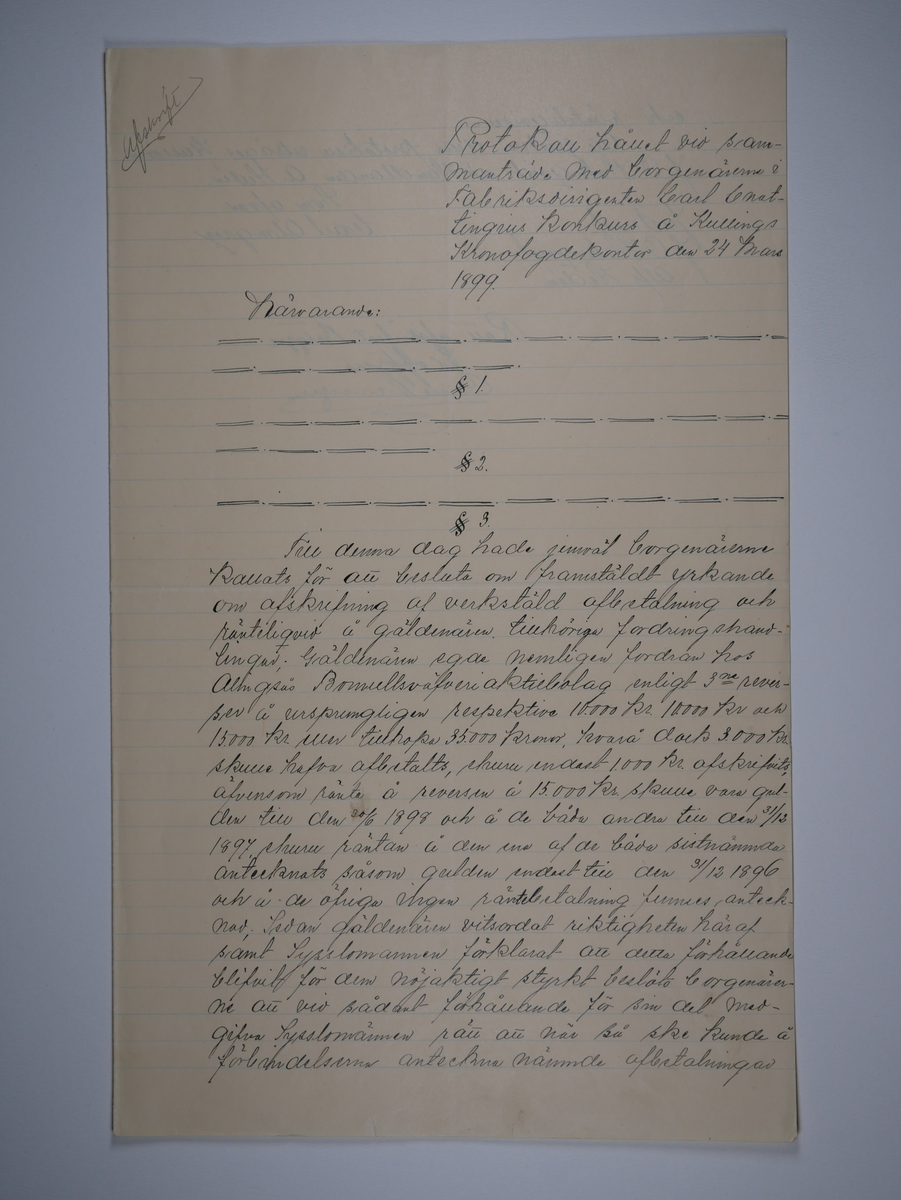 Afskrift
Protokoll hållet vid sam-
manträde med borgenärerna i
Fabriksdisigenten Carl Cnat-
tingius konkurs å Kullings
Kronofogdekontor den 24 Mars
1899.
Närvarande:
§ 1.
§ 2.
§ 3.
Till denna dag hade jemväl borgenärerne
kallats för att besluta om framstäldt yrkande
om afskrifning af verkstäld afbetalning och
ränteliqvid å gäldenären tillhöriga fordringshand-
lingar. Gäldenären egde nemligen fordran hos
Alingsås Bomullsväfveriaktiebolag enligt 3ne rever-
ser å ursprungligen respektive 10.000 kr. 10.000 kr och
15.000 kr. eller tillhopa 35.000 kronor, hvarå dock 3.000 kr.
skulle hafva afbetalts, ehuru endast 1000 kr. afskrifvits,
äfvensom ränta å reversen å 15.000 kr. skulle vara gul-
den till den 30/6 1898 och å de båda andra till den 31/12
1897, ehuru räntan å den ena af de båda sistnämnda
antecknats såsom gulden endast till den 31/12 1896
och å de öfriga ingen räntebetalning funnes anteck-
nad. Sedan gäldenären vitsordat riktigheten häraf
samt Sysslomannen förklarat att detta förhållande
blifvit för dem nöjaktigt styrkt beslöto borgenärer-
ne att vid sådant förhållande för sin del med-
gifva Sysslomännen rätt att når så ske kunde å
förbindelserna anteckna nämnda afbetalningar